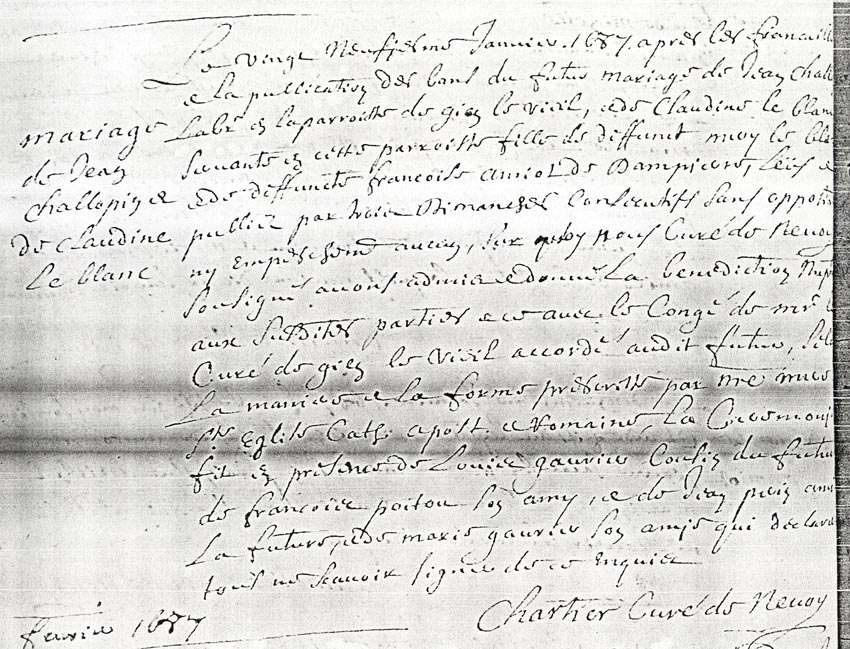 mariage
de Jean
Challopin et
de Claudine
Le blanc
Le vingt Neufiesme Janvier 1687 apres les fiancaill
et la publication des bans du futur mariage de Jean Chall
Labr en la parroisse de gien le vieil, et de Claudine le blan
Servante en cette parroisse fille de deffunct le bla
et de deffuncte francoise amiot de Dampierre, Leus et
publiez par trois Dimanches Consecutifs sans opposi
ny empeschemt aucun, sur quoy nous Curé de Nevoy
soubsigné avons admis et donné La benediction Nup
aux susdites parties et ce avec le Congé de mr le
Curé de gien le vieil accordé audit futur, selo
La maniere et la forme prescritte par nre mere
Ste Eglise Cath. apost. et Romaine, La Ceremoni
fit en presence de Louis gaurier Cousin du futur
de francois poitou son amy, et de Jean ami
La future, et de marie gaurier son amie qui declare
tous ne scavoir signer de ce Enquis
Chartier Curé de Nevoy
fevrier 1687